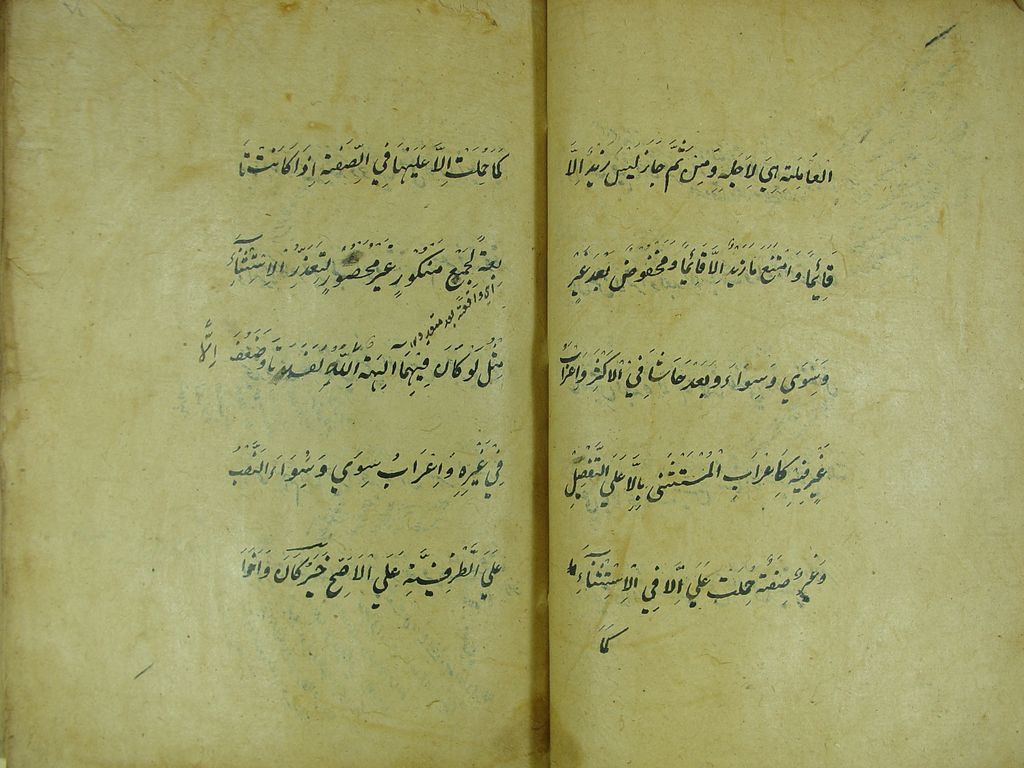 العَامِلَةِ هِيَ لِاَجلِهِ وَمِنْ ثَمَّ جَازَ لَيْسَ زَيْدٌ اِلَّا
قَائِمًا وَامْتَنَعَ مَا زَيْدٌ اِلَّا قَائِمًا وَمَخْفُوضٌ بَعْدَ غَيْرِ
وَسِوَي وَسِوَاءَ وَبَعْدَ حَاشَا فِي الْاَكْثَرِ وَاِعْرَابُ
غَيْرٍ فِيْهِ كَاِعْرَابِ الْمُسْتَثْنَى بِاِلَّا عَلَي التَّفْصِيْلِ
وَغَيْرٌ صِفَةٌ حُمِلَتْ عَلَي اِلَّا فِي الْاِسْتِثْنَآءِ
كَمَا
كَمَا حُمِلَتْ اِلَّا عَلَيْهَا فِي الصِّفَةِ اِذَا كَانَتْ تَا
بِعَةً لِجَمْعٍ مَنْكُوْرٍ غَيْرِ مَحْصُوْرٍ لِتَعَذُّرِ الْاِسْتِثْنَآءِ
اَي وَاقِعَةً بعد متعدد
مِثْلُ لَوْ كَانَ فِيْهِمَآ اٰلِهَةٌ اِلَّا اللّٰهُ لَفَسَدَتَا وَضَعُفَ اِلَّا
فِيْ غَيْرِهِ وَاِعْرَابُ سِوَي وَسِوَاءَ النَّصْبُ
عَلَي الظَّرْفِيَّةِ عَلَي الْاَصَحِّ خَبَرُ كَانَ وَاَخَوَا